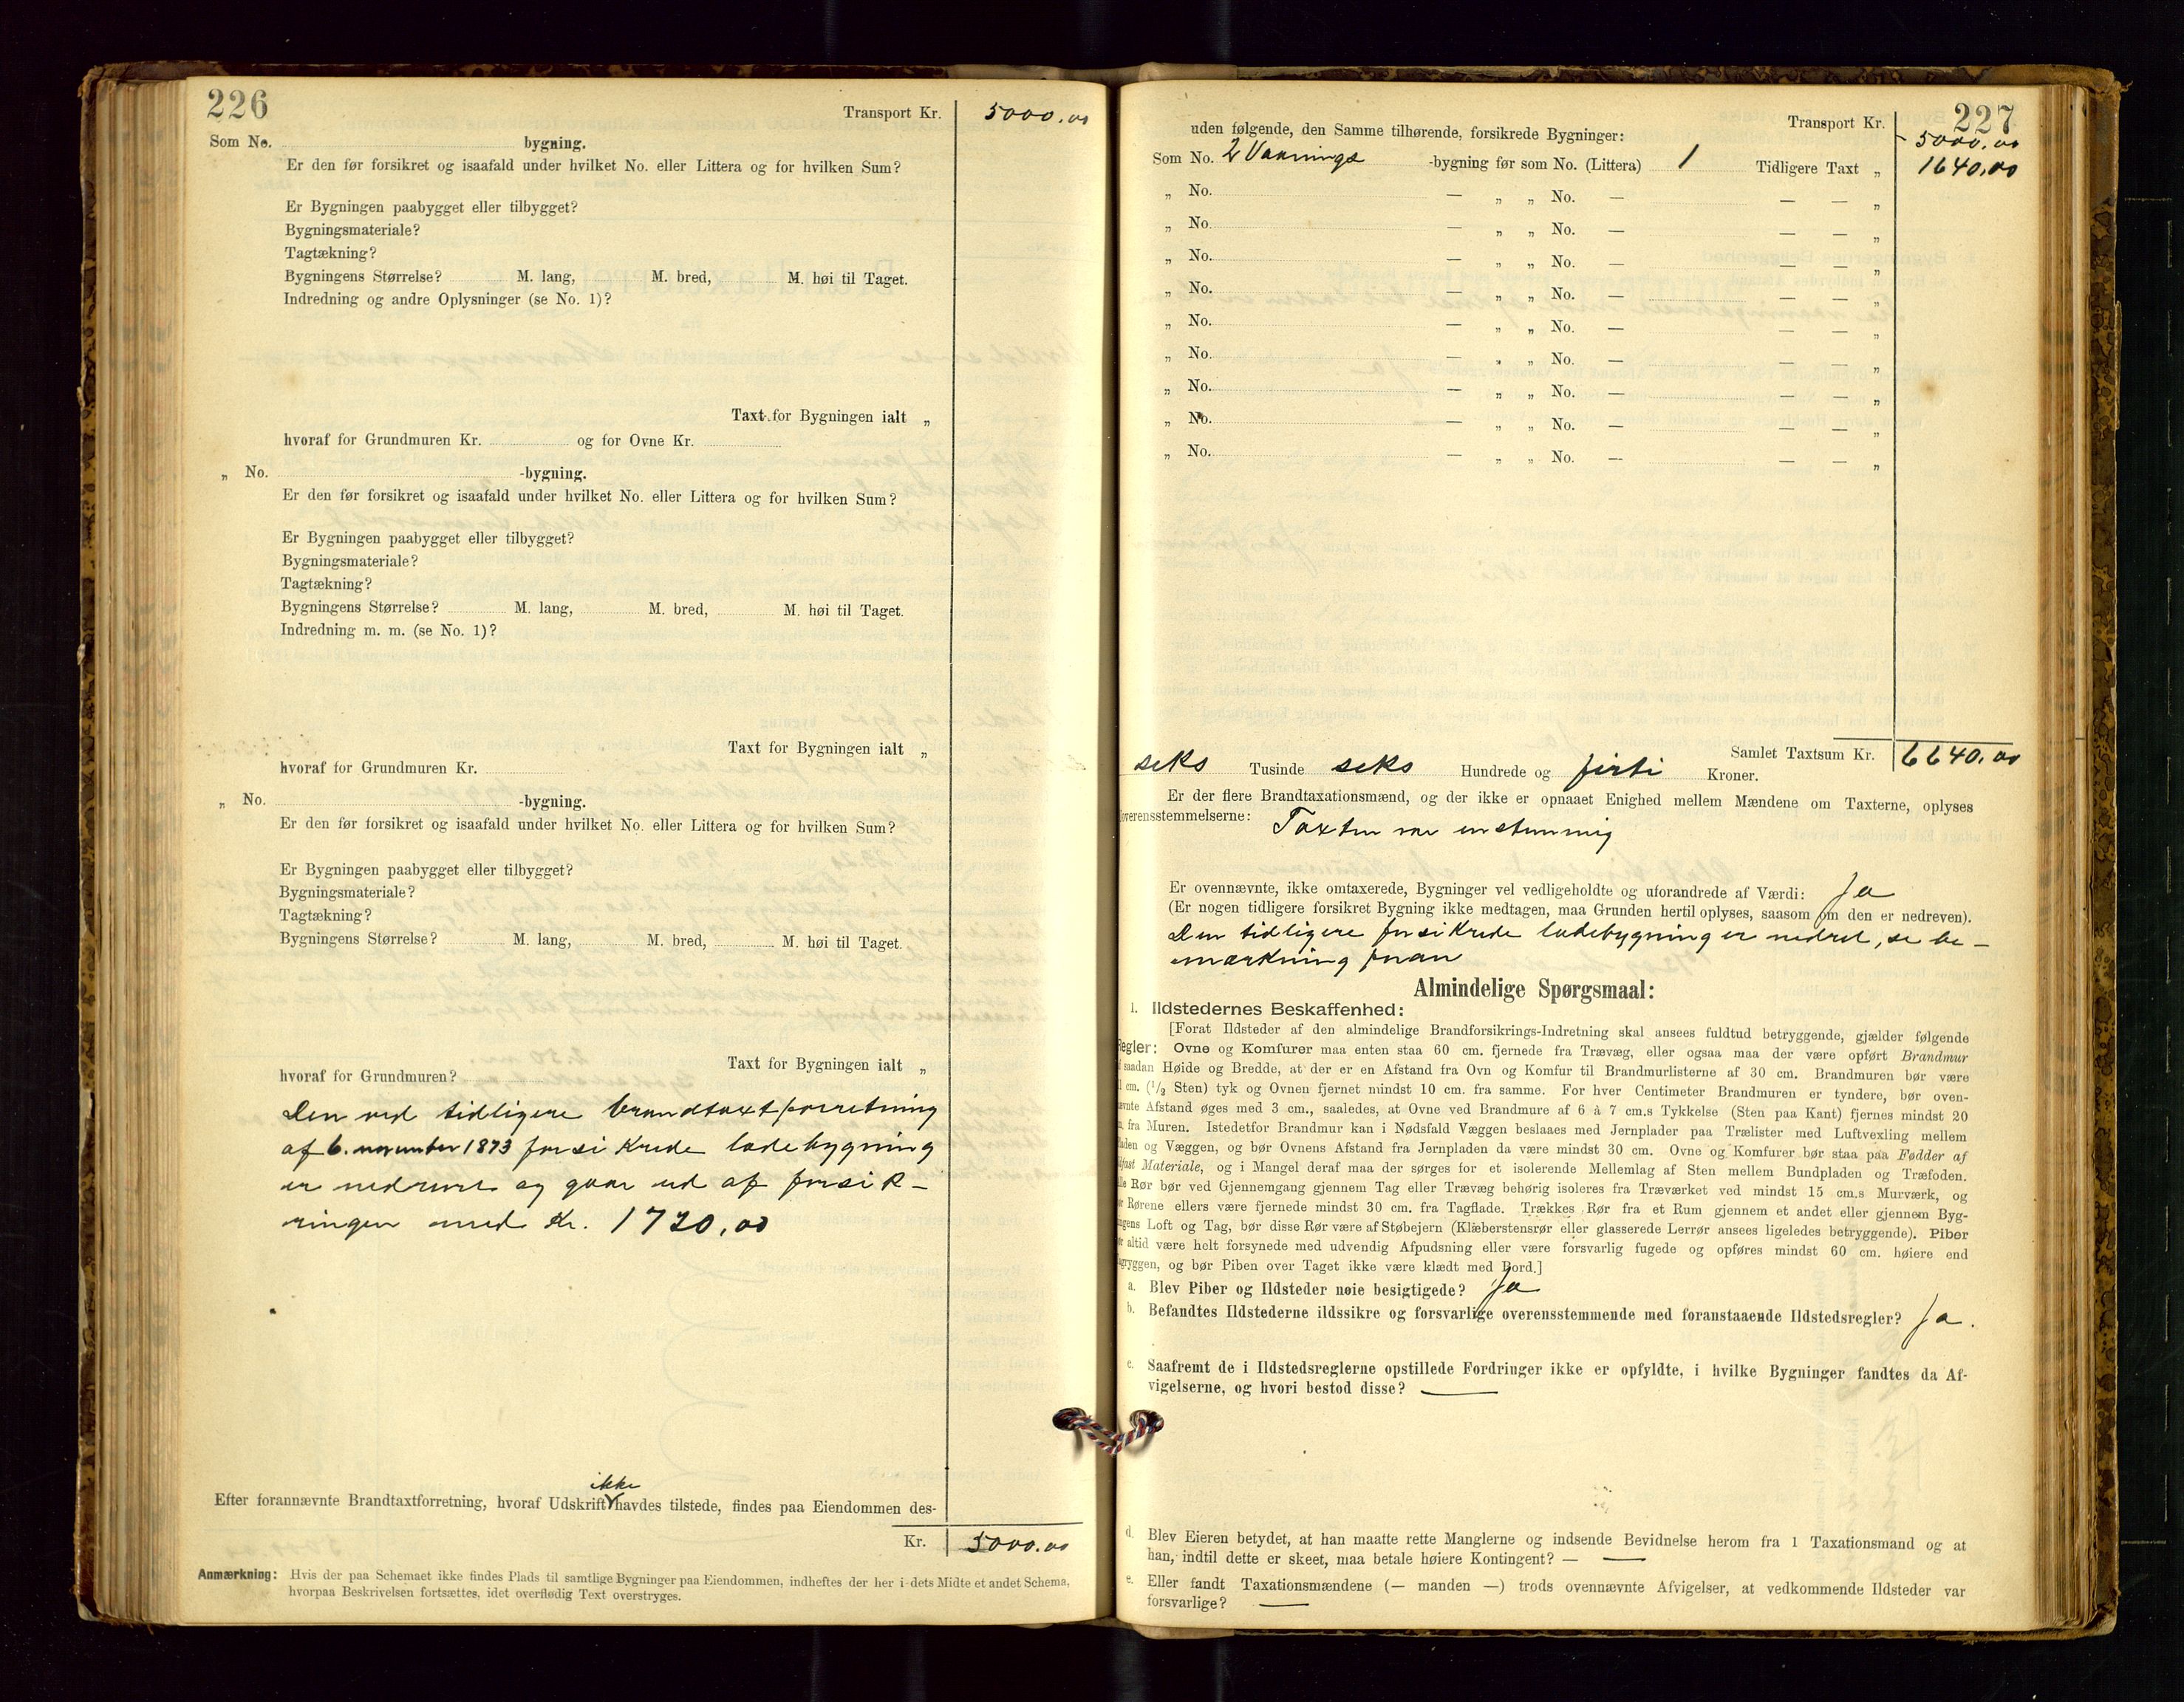 226
Transport Kr. 5000.00
Som No. bygning.
Er den før forsikret og isaafald under hvilket No. eller Littera og for hvilken Sum?
Er Bygningen paabygget eller tilbygget?
Bygningsmateriale?
Tagtækning?
Bygningens Størrelse? M. lang, M. bred, M. høi til Taget.
Indredning og andre Oplysninger (se No. 1)?
Taxt for Bygningen ialt „
hvoraf for Grundmuren Kr. og for Ovne Kr.
„ No. -bygning.
Er den før forsikret og isaafald under hvilket No. eller Littera og for hvilken Sum?
Er Bygningen paabygget eller tilbygget?
Bygningsmateriale?
Tagtækning?
Bygningens Størrelse? M. lang, M. bred, M. høi til Taget.
Indredning m. m. (se No. 1)?
Taxt for Bygningen ialt „
hvoraf for Grundmuren Kr.
„ No. -bygning.
Er den før forsikret og isaafald under hvilket No. eller Littera og for hvilken Sum?
Er Bygningen paabygget eller tilbygget?
Bygningsmateriale?
Tagtækning?
Bygningens Størrelse? M. lang, M. bred, M. høi til Taget.
Taxt for Bygningen ialt „
hvoraf for Grundmuren?
Den ved tidligere brandtaxtforretning
af 6. november 1873 forsikrede ladebygning
er nedrevet og gaar ud af forsik-
ringen med Kr. 1720,00
ikke
Efter forannævnte Brandtaxtforretning, hvoraf Udskrift havdes tilstede, findes paa Eiendommen des-
Kr. 5000.00
Anmærkning: Hvis der paa Schemaet ikke findes Plads til samtlige Bygninger paa Eiendommen, indheftes der her i dets Midte et andet Schema,
hvorpaa Beskrivelsen fortsættes, idet overflødig Text overstryges.
227
Transport Kr. 5000.00
uden følgende, den Samme tilhørende, forsikrede Bygninger:
Som No. 2 Vaanings -bygning før som No. (Littera) 1 Tidligere Taxt „ 1640,00
„ No. — „ „ No. — — — „
„ No. — „ „ No. — — — „
„ No. — „ „ No. — — — „
„ No. — „ „ No. — — — „
„ No. — „ „ No. — — — „
„ No. — „ „ No. — — — „
„ No. — „ „ No. — — — „
„ No. — „ „ No. — — — „
„ No. — „ „ No. — — — „
Samlet Taxtsum Kr. 6640.00
seks Tusinde seks Hundrede og firti Kroner.
Er der flere Brandtaxationsmænd, og der ikke er opnaaet Enighed mellem Mændene om Taxterne, oplyses
overensstemmelserne: Taxten var enstemmig
Er ovennævnte, ikke omtaxerede, Bygninger vel vedligeholdte og uforandrede af Værdi: Ja
(Er nogen tidligere forsikret Bygning ikke medtagen, maa Grunden hertil oplyses, saasom om den er nedreven).
Den tidligere forsikrede ladebygning er nedret, se be-
mærkning foran
Almindelige Spørgsmaal:
1. Ildstedernes Beskaffenhed:
[Forat Ildsteder af den almindelige Brandforsikrings-Indretning skal ansees fuldtud betryggende, gjælder følgende
Regler: Ovne og Komfurer maa enten staa 60 cm. fjernede fra Trævæg, eller ogsaa maa der være opført Brandmur
f saadan Høide og Bredde, at der er en Afstand fra Ovn og Komfur til Brandmurlisterne af 30 cm. Brandmuren bør være
1 cm. (1/2 Sten) tyk og Ovnen fjernet mindst 10 cm. fra samme. For hver Centimeter Brandmuren er tyndere, bør oven-
nævnte Afstand øges med 3 cm., saaledes, at Ovne ved Brandmure af 6 à 7 cm.s Tykkelse (Sten paa Kant) fjernes mindst 20
m. fra Muren. Istedetfor Brandmur kan i Nødsfald Væggen beslaaes med Jernplader paa Trælister med Luftvexling mellem
laden og Væggen, og bør Ovnens Afstand fra Jernpladen da være mindst 30 cm. Ovne og Komfurer bør staa paa Fødder af
ldfast Materiale, og i Mangel deraf maa der sørges for et isolerende Mellemlag af Sten mellem Bundpladen og Træfoden.
lle Rør bør ved Gjennemgang gjennem Tag eller Trævæg behørig isoleres fra Træværket ved mindst 15 cm.s Murværk, og
ør Rørene ellers være fjernede mindst 30 cm. fra Tagflade. Trækkes Rør fra et Rum gjennem et andet eller gjennem Byg-
ngens Loft og Tag, bør disse Rør være af Støbejern (Klæberstensrør eller glasserede Lerrør ansees ligeledes betryggende). Piber
ør altid være helt forsynede med udvendig Afpudsning eller være forsvarlig fugede og opføres mindst 60 cm. høiere end
agryggen, og bør Piben over Taget ikke være klædt med Bord.]
a. Blev Piber og Ildsteder nøie besigtigede? Ja
b. Befandtes Ildstederne ildssikre og forsvarlige overensstemmende med foranstaaende Ildstedsregler? Ja.
c. Saafremt de i Ildstedsreglerne opstillede Fordringer ikke er opfyldte, i hvilke Bygninger fandtes da Af-
vigelserne, og hvori bestod disse? —
d. Blev Eieren betydet, at han maatte rette Manglerne og indsende Bevidnelse herom fra 1 Taxationsmand og at
han, indtil dette er skeet, maa betale høiere Kontingent? — —
e. Eller fandt Taxationsmændene (— manden —) trods ovennævnte Afvigelser, at vedkommende Ildsteder var
forsvarlige? —